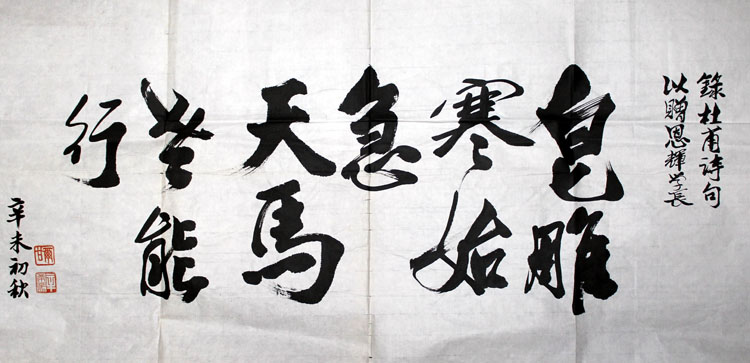 錄杜甫詩句
以贈恩輝学長
皂雕
寒始
急
天馬
老能
行
辛未初秋